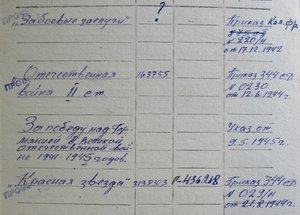 ?
"За боевые заслуги"
Приказ Кал.фр.
№ 220/н
от 17.12.1942
Отечественная
война II ст.
163755
Приказ 344 сд
№ 0230
от 12.6.1944г.
За победу над Гер-
манией в Великой
отечественной вой-
не 1941-1945 годов.
Указ от
9.5.1945г.
"Красная звезда"
Р-436248
Приказ 344 сд
№ 029/н
от 21.8.1944г.